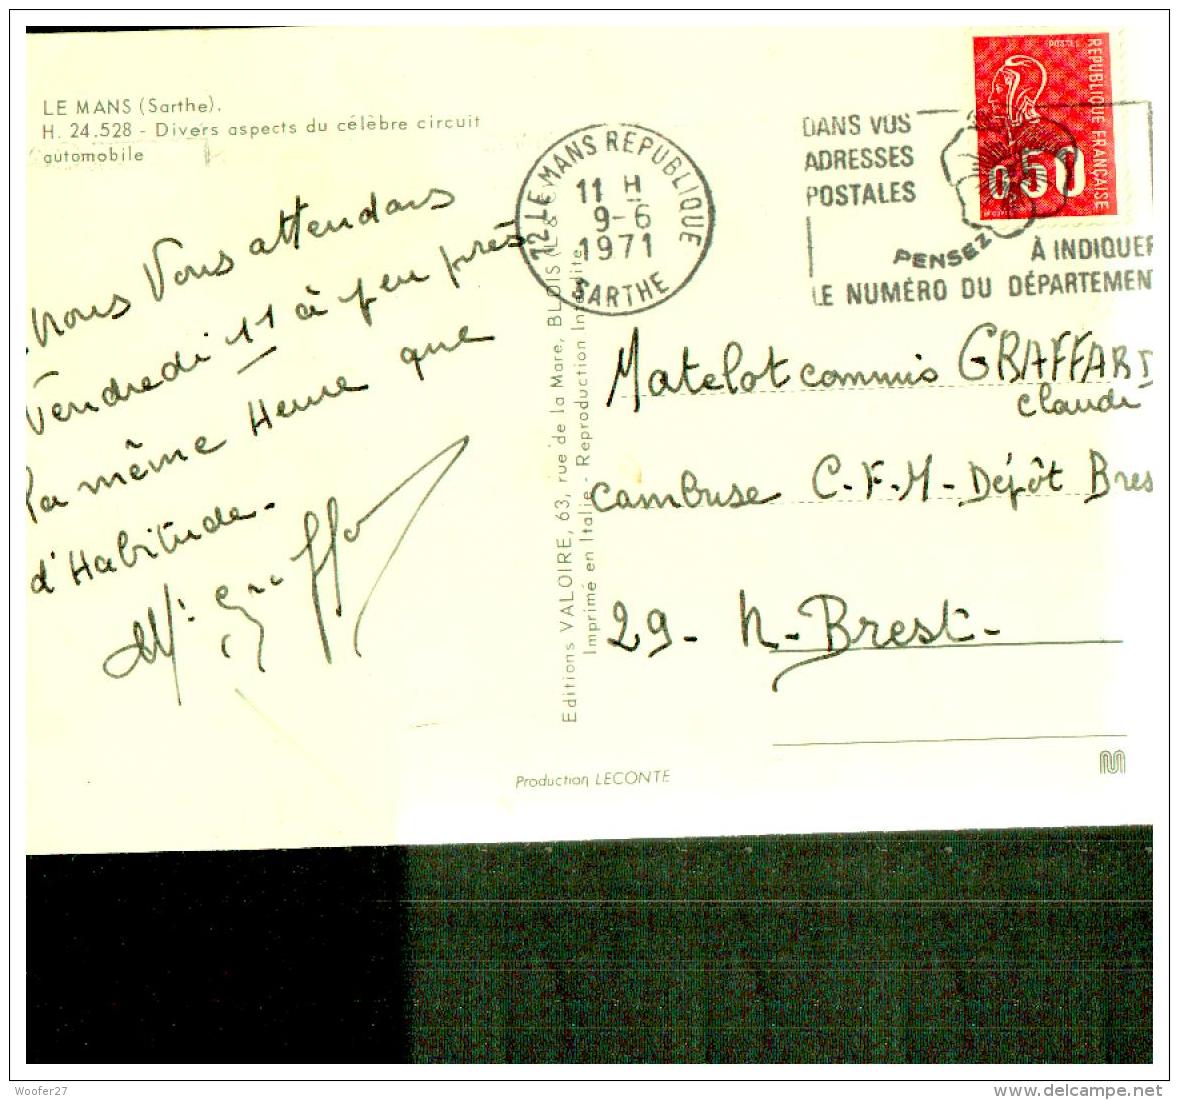 LE MANS (Sarthe).
H. 24.528 - Divers aspects du célèbre circuit
automobile
Nous Vous attendons
Vendredi 11 à peu près
la même Heure que
d'Habitude.
72 LE MANS REPUBLIQUE
11 H
9-6
1971
SARTHE
DANS VOS
ADRESSES
POSTALES
PENSEZ
À INDIQUER
LE NUMÉRO DU DÉPARTEMENT
POSTES
REPUBLIQUE FRANÇAISE
0,50
Editions VALOIRE, 63, rue de la Mare, BLOIS (L & C)
Imprimé en Italie - Reproduction Interdite
Matelot commis GRAFFARD
Claude
Cambuse C.F.M. Dépôt Bres
29 - N. Brest.
Production LECONTE
Woofer27
www.delcampe.net